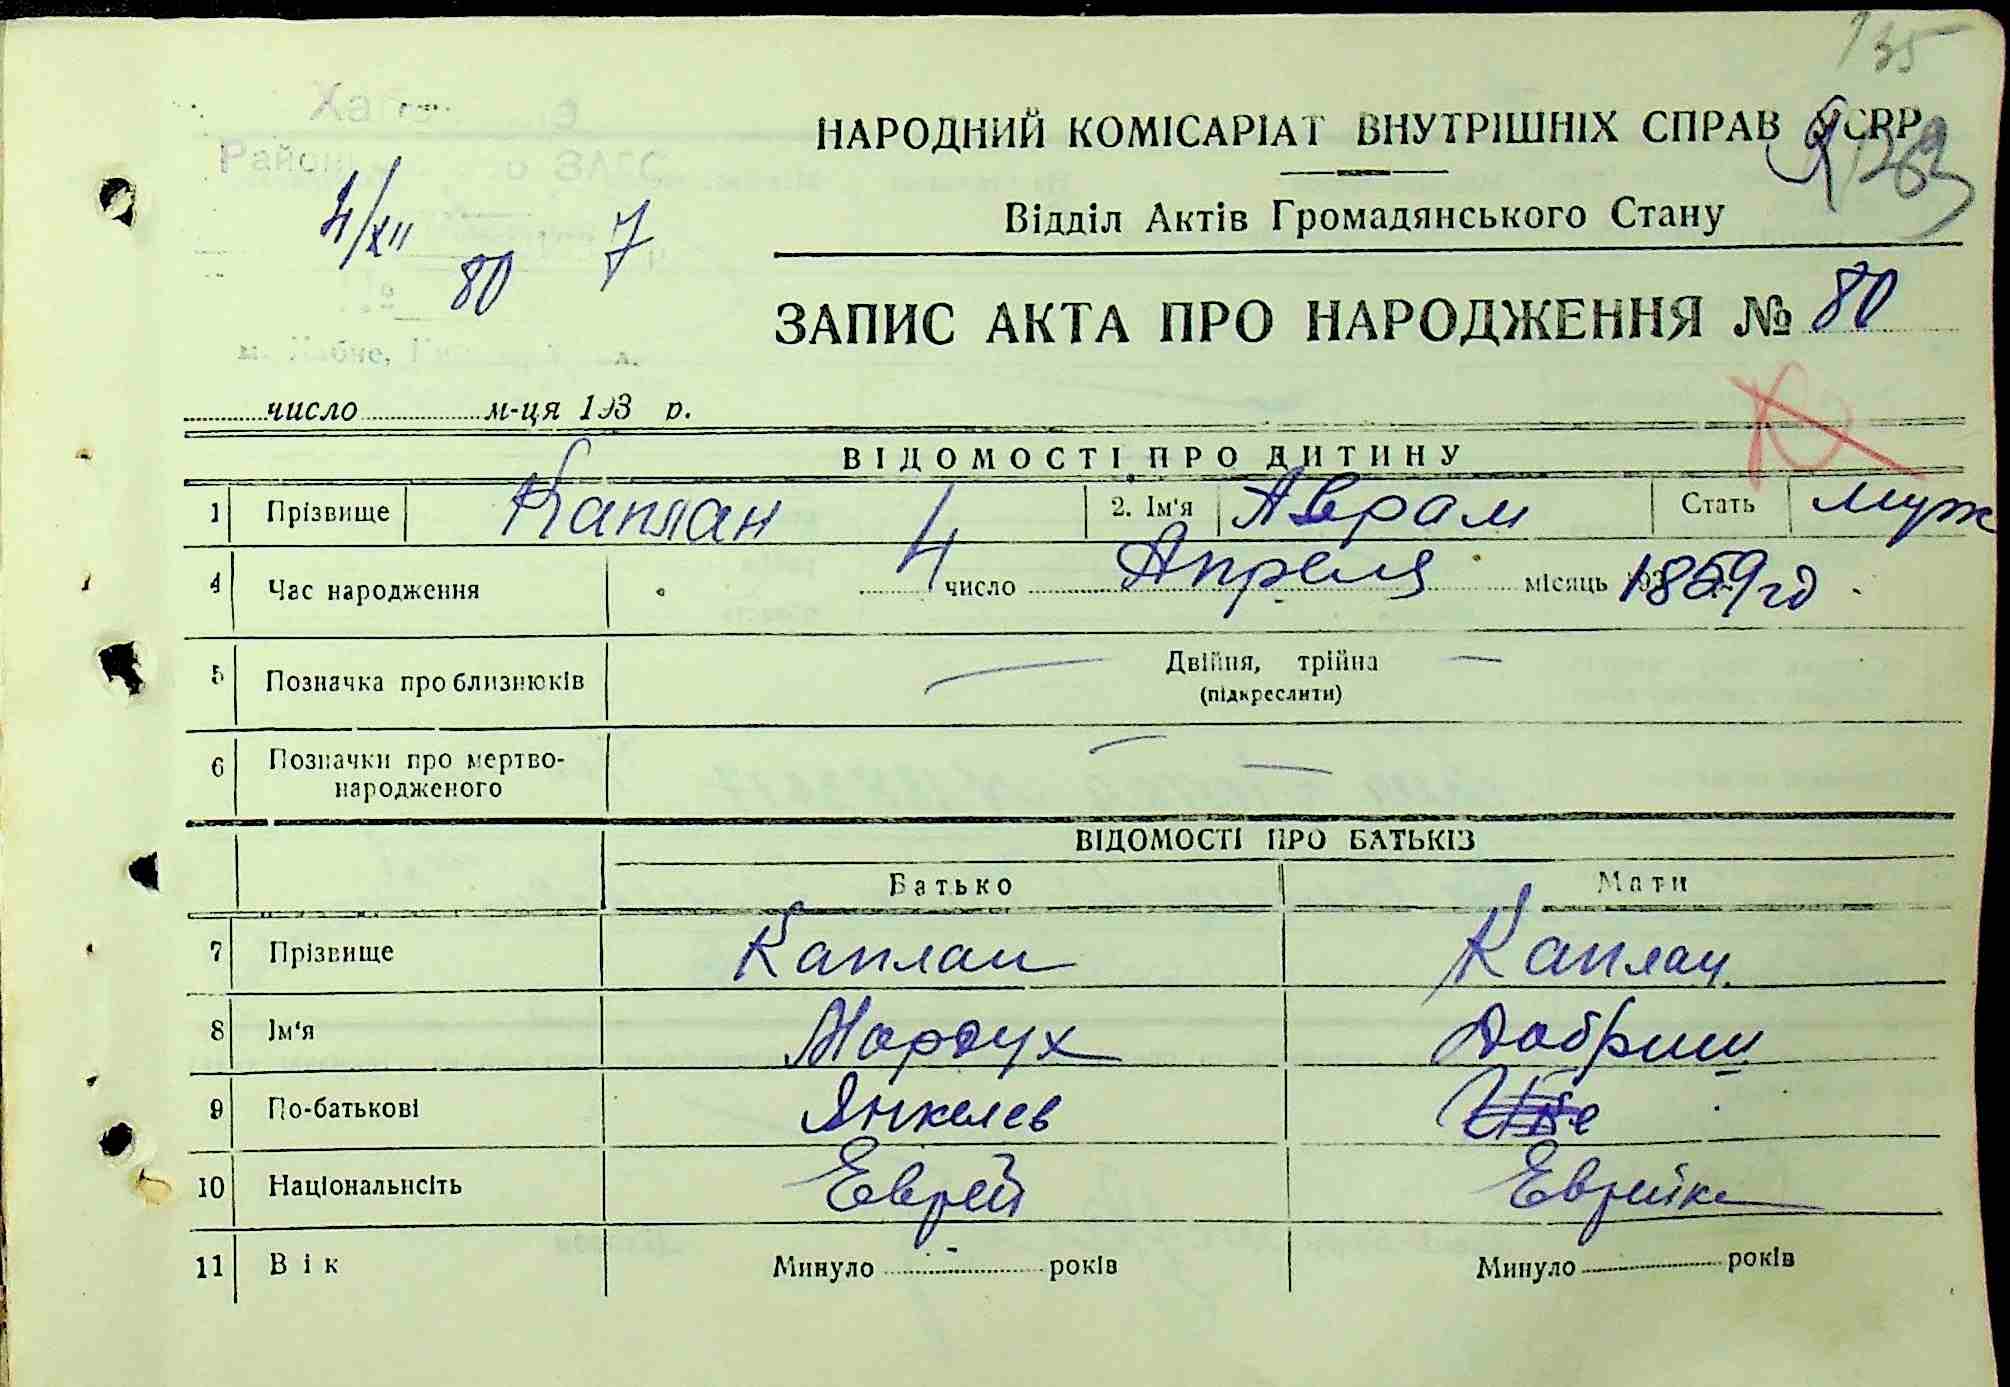 135
НАРОДНИЙ КОМІСАРІАТ ВНУТРІШНІХ СПРАВ УСРР
Відділ Актів Громадянського Стану
4/XII
80 7
ЗАПИС АКТА ПРО НАРОДЖЕННЯ № 80
число м-ця 193 р.
ВІДОМОСТІ ПРО ДИТИНУ
1 Прізвище Каплан 2. Ім'я Аврам Стать муж
4 Час народження 4 число Апреля місяць 1859 год
5 Позначка про близнюків Двійня, трійна
(підкреслити)
6 Позначки про мертво-
народженого
ВІДОМОСТІ ПРО БАТЬКІВ
Батько Мати
7 Прізвище Каплан Каплан
8 Ім'я Мордух Добриш
9 По-батькові Янкелев
10 Національність Еврей Еврейка
11 Вік Минуло років Минуло років